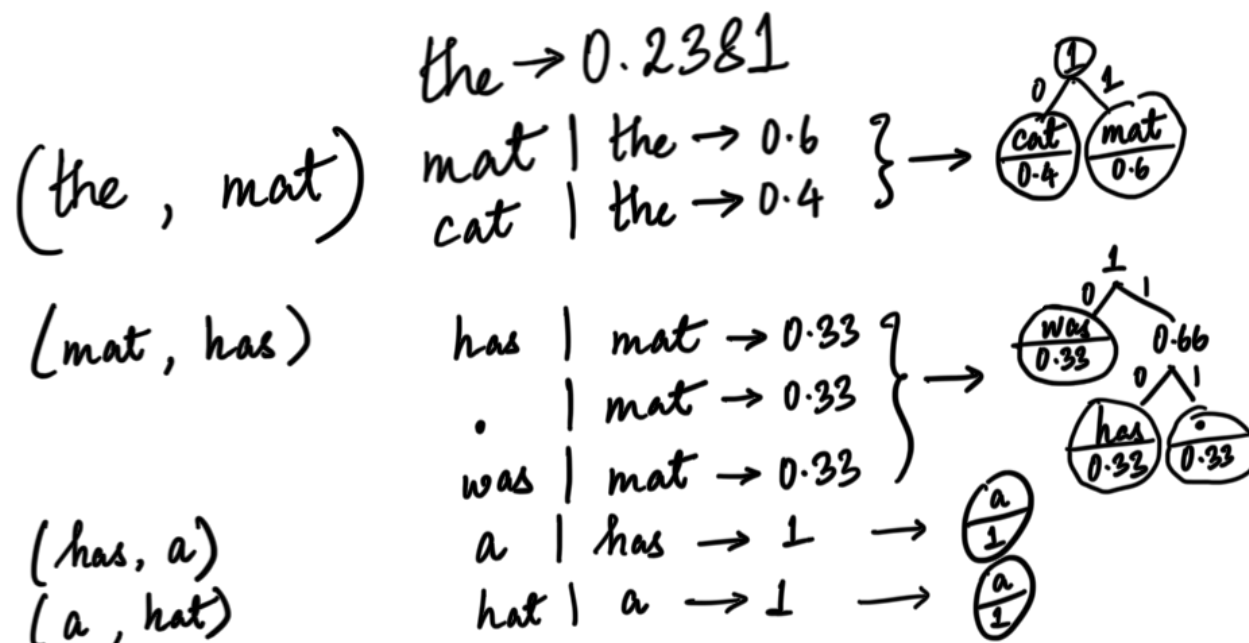 the → 0.2381
(the , mat) mat | the → 0.6
cat | the → 0.4
1
0 1
cat mat
0.4 0.6
(mat, has) has | mat → 0.33
. | mat → 0.33
was | mat → 0.33
1
0 1
was 0.66
0.33
0 1
has .
0.33 0.33
(has, a) a | has → 1 → a
1
(a , hat) hat | a → 1 → a
1